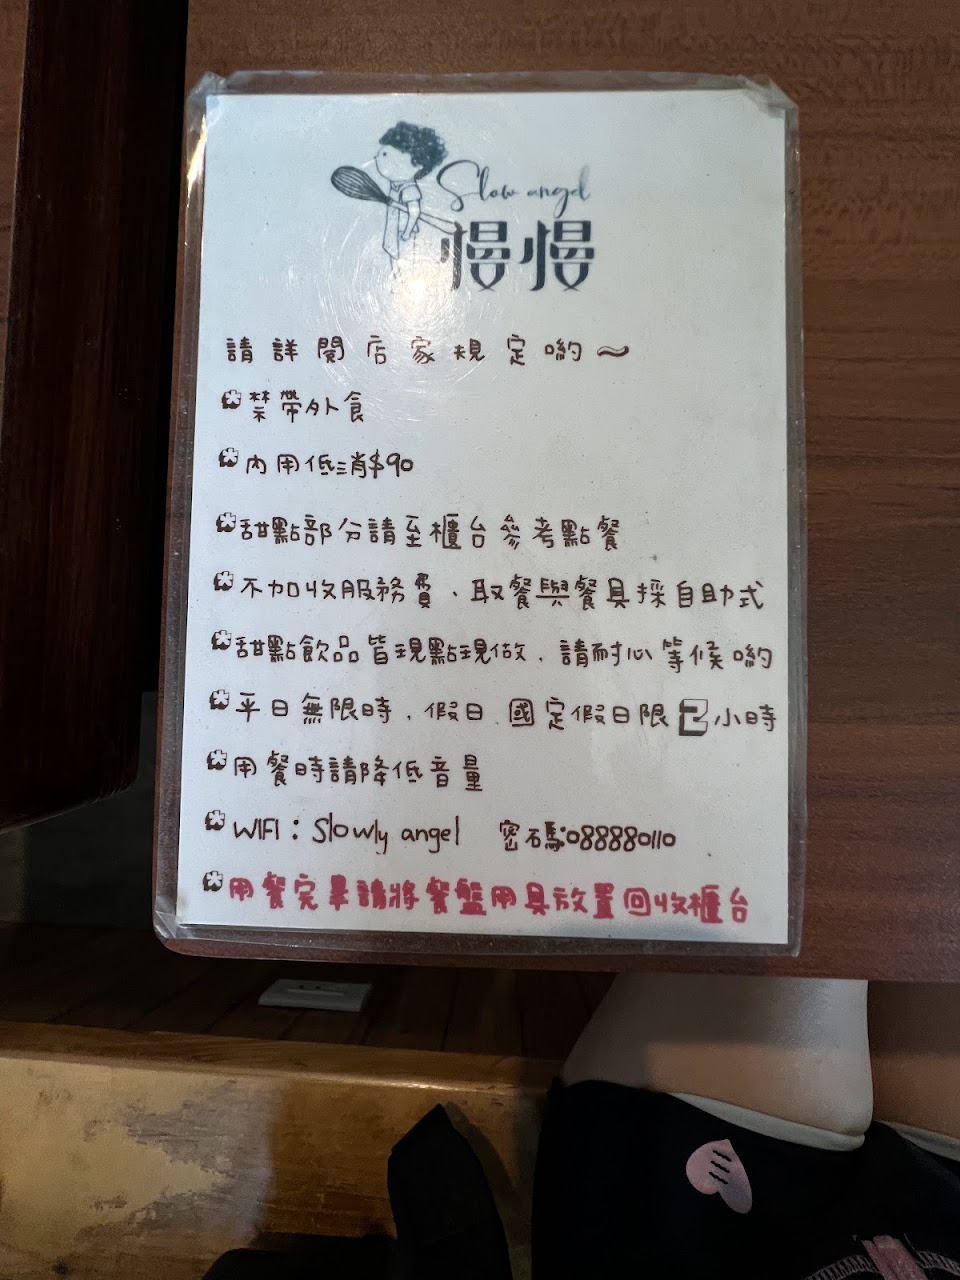 Slow angel
慢慢
請詳閱店家規定喲～
禁帶外食
內用低消$90
甜點部分請至櫃台參考點餐
不加收服務費、取餐與餐具採自助式
甜點飲品皆現點現做，請耐心等候喲
平日無限時，假日、國定假日限2小時
用餐時請降低音量
WIFI：Slowly angel 密碼:088880110
用餐完畢請將餐盤用具放置回收櫃台